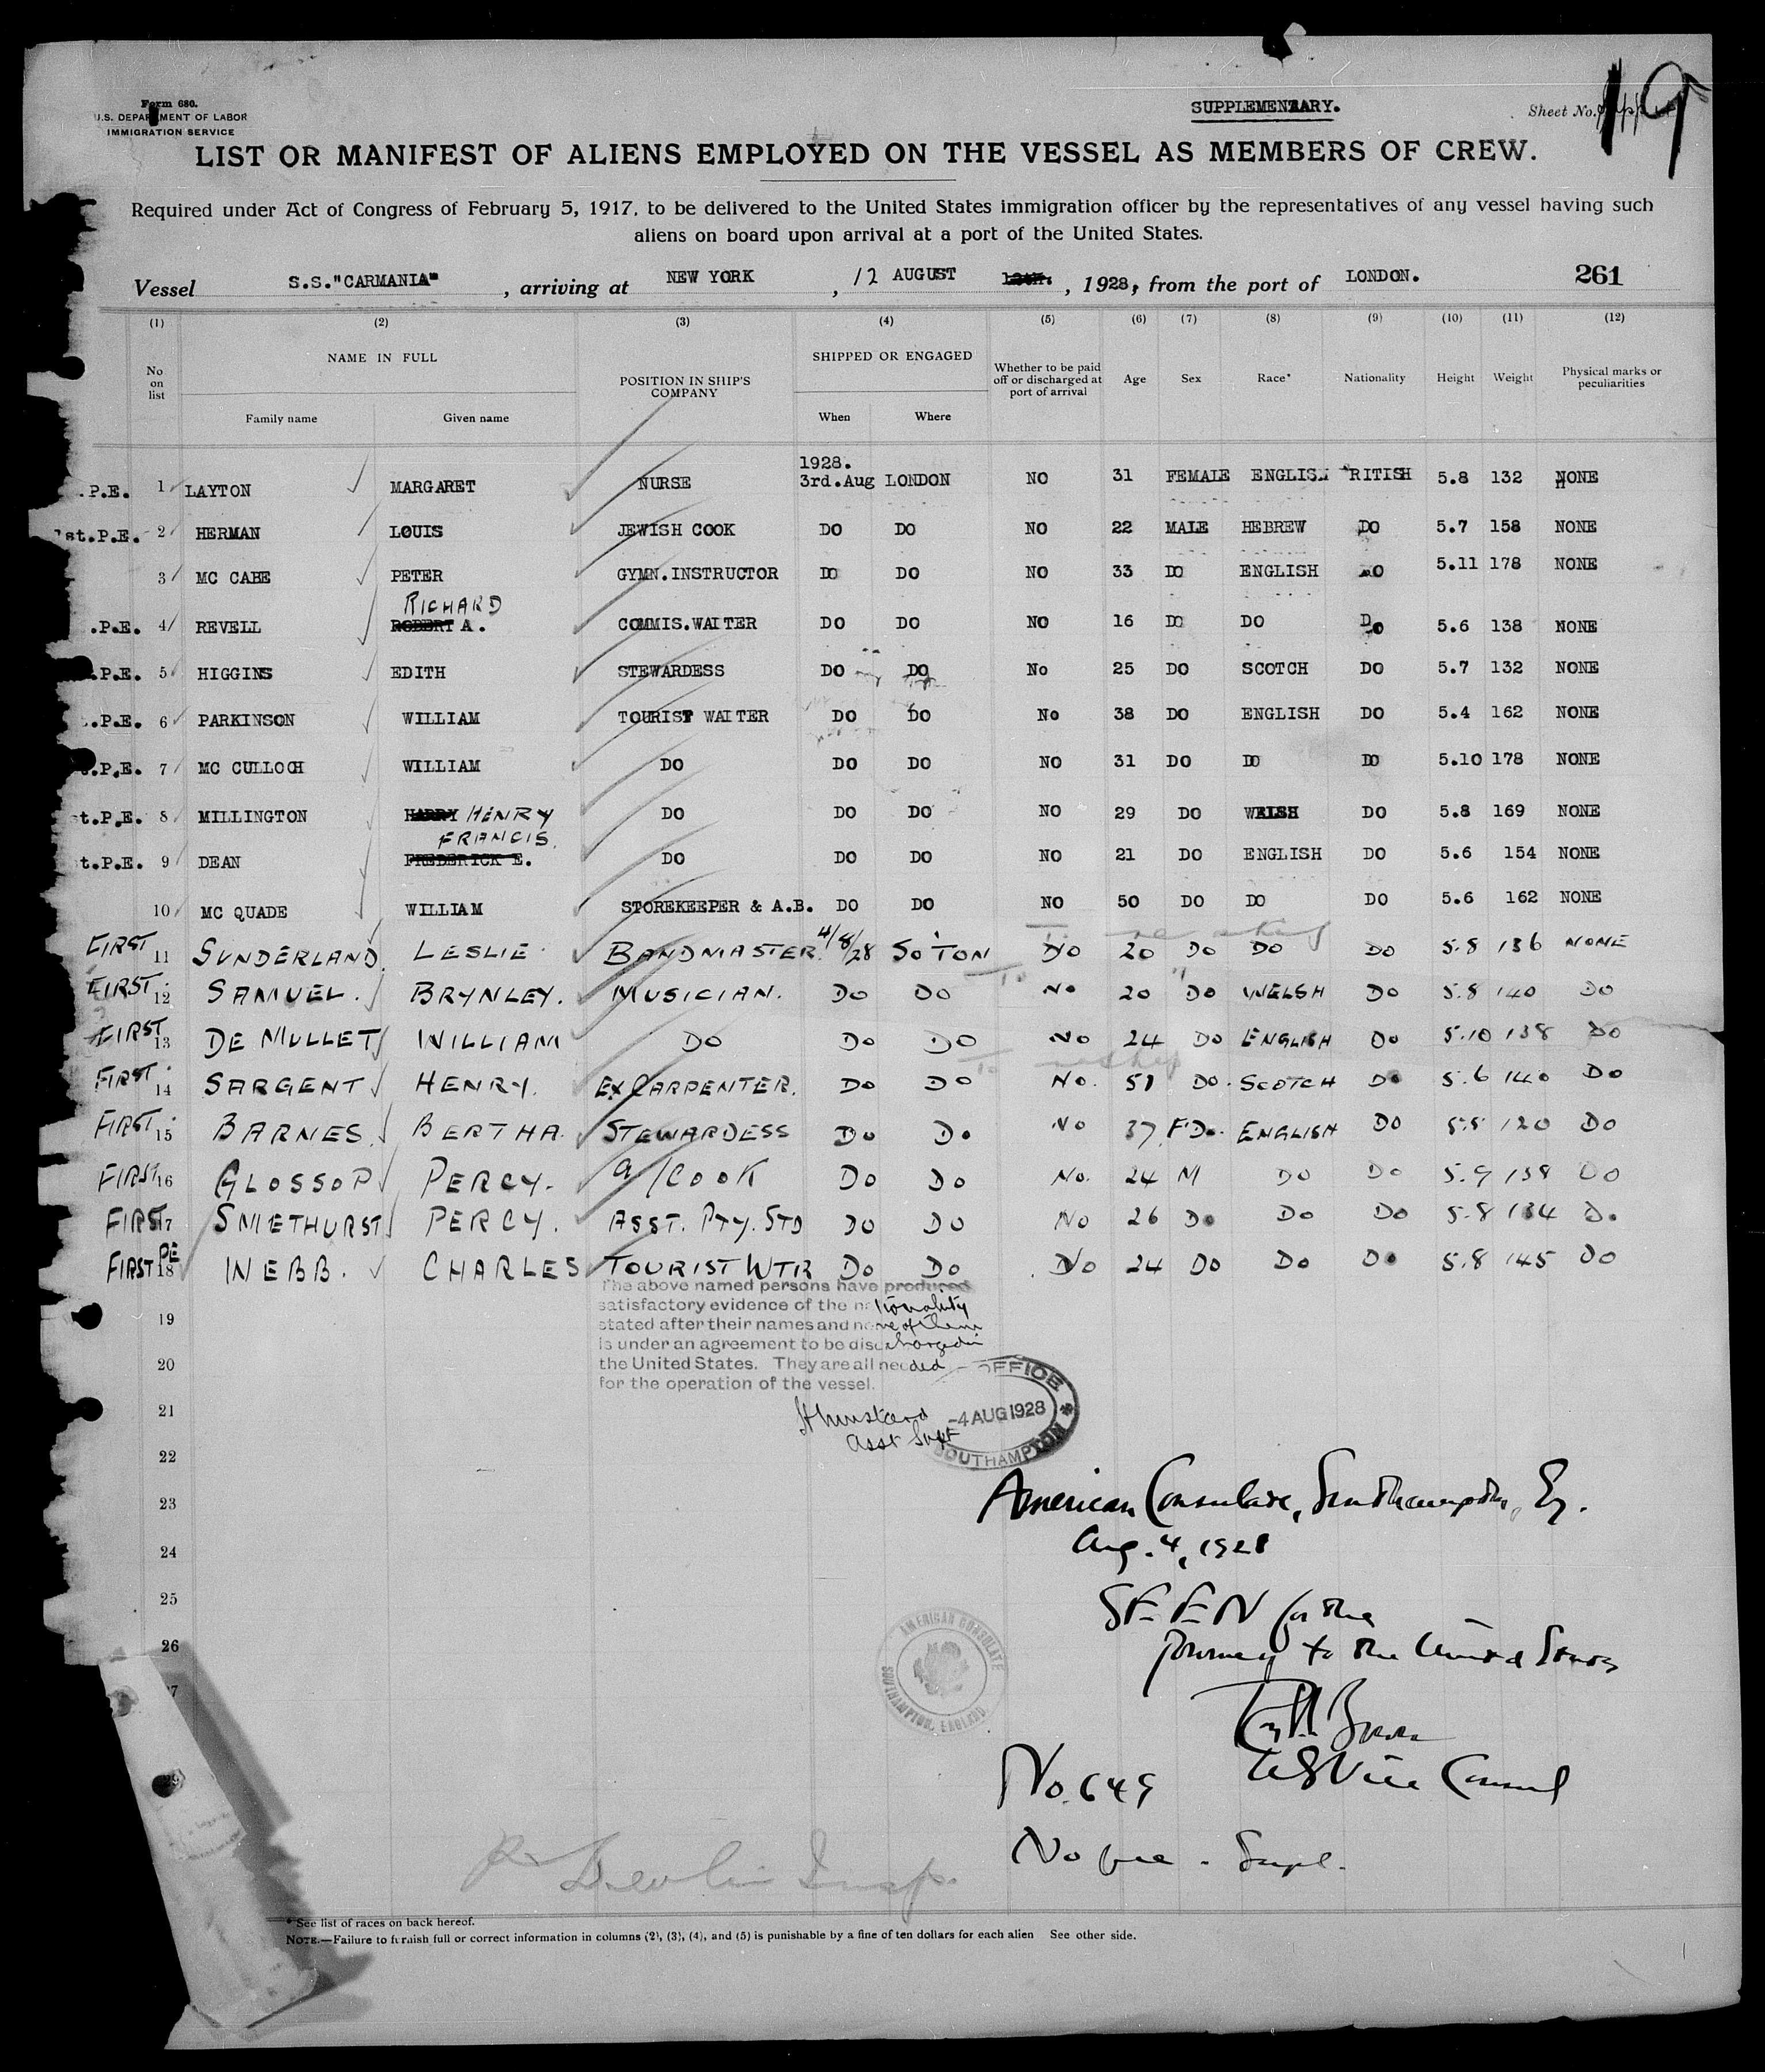 Form 680.
U.S. DEPARTMENT OF LABOR
IMMIGRATION SERVICE
SUPPLEMENTARY.
Sheet No.
19
LIST OR MANIFEST OF ALIENS EMPLOYED ON THE VESSEL AS MEMBERS OF CREW.
Required under Act of Congress of February 5, 1917, to be delivered to the United States immigration officer by the representatives of any vessel having such
aliens on board upon arrival at a port of the United States.
Vessel S.S."CARMANIA" , arriving at NEW YORK , 12 AUGUST , 1928, from the port of LONDON. 261
(1) (2) (3) (4) (5) (6) (7) (8) (9) (10) (11) (12)
No on list NAME IN FULL POSITION IN SHIP'S COMPANY SHIPPED OR ENGAGED Whether to be paid off or discharged at port of arrival Age Sex Race* Nationality Height Weight Physical marks or peculiarities
Family name Given name When Where
1928.
.P.E. 1 LAYTON MARGARET NURSE 3rd.Aug LONDON NO 31 FEMALE ENGLISH RITISH 5.8 132 NONE
1st.P.E. 2 HERMAN LOUIS JEWISH COOK DO DO NO 22 MALE HEBREW DO 5.7 158 NONE
3 MC CABE PETER GYMN.INSTRUCTOR DO DO NO 33 DO ENGLISH DO 5.11 178 NONE
RICHARD
.P.E. 4 REVELL ROBERT A. COMMIS.WAITER DO DO NO 16 DO DO Do 5.6 138 NONE
.P.E. 5 HIGGINS EDITH STEWARDESS DO DO No 25 DO SCOTCH DO 5.7 132 NONE
.P.E. 6 PARKINSON WILLIAM TOURIST WAITER DO DO No 38 DO ENGLISH DO 5.4 162 NONE
.P.E. 7 MC CULLOCH WILLIAM DO DO DO NO 31 DO DO DO 5.10 178 NONE
t.P.E. 8 MILLINGTON HARRY HENRY DO DO DO NO 29 DO WELSH DO 5.8 169 NONE
FRANCIS.
t.P.E. 9 DEAN FREDERICK E. DO DO DO NO 21 DO ENGLISH DO 5.6 154 NONE
10 MC QUADE WILLIAM STOREKEEPER & A.B. DO DO NO 50 DO DO DO 5.6 162 NONE
FIRST 11 SUNDERLAND LESLIE BANDMASTER 4/8/28 SO'TON No 20 Do Do Do 5.8 136 NONE
FIRST 12 SAMUEL. BRYNLEY. MUSICIAN. Do Do No 20 Do WELSH Do 5.8 140 Do
FIRST 13 DE MULLET WILLIAM Do Do Do No 24 Do ENGLISH Do 5.10 138 Do
FIRST 14 SARGENT HENRY. EX CARPENTER. Do Do No. 51 Do. SCOTCH Do 5.6 140 Do
FIRST 15 BARNES BERTHA. STEWARDESS Do Do No 37 F Do. ENGLISH Do 5.5 120 Do
FIRST 16 GLOSSOP PERCY. a/COOK Do Do No. 24 M Do Do 5.9 138 Do
FIRST 17 SMETHURST PERCY. ASST. PTY. STD Do Do No 26 Do Do Do 5.8 134 Do
FIRST PE 18 WEBB. CHARLES TOURIST WTR Do Do No 24 Do Do Do 5.8 145 Do
The above named persons have produced
satisfactory evidence of the nationality
stated after their names and none of them
is under an agreement to be discharged in
the United States. They are all needed
for the operation of the vessel.
Asst Supt
OFFICE
-4 AUG 1928
SOUTHAMPTON
19
20
21
22
23
24
25
26
American Consulate, Southampton, Eng.
Aug. 4, 1928
SEEN for the
journey to the United States
AMERICAN CONSULATE
SOUTHAMPTON, ENGLAND
US Vice Consul
No. 649
No fee. Supl.
Devlin Insp.
* See list of races on back hereof.
NOTE.—Failure to furnish full or correct information in columns (2), (3), (4), and (5) is punishable by a fine of ten dollars for each alien See other side.